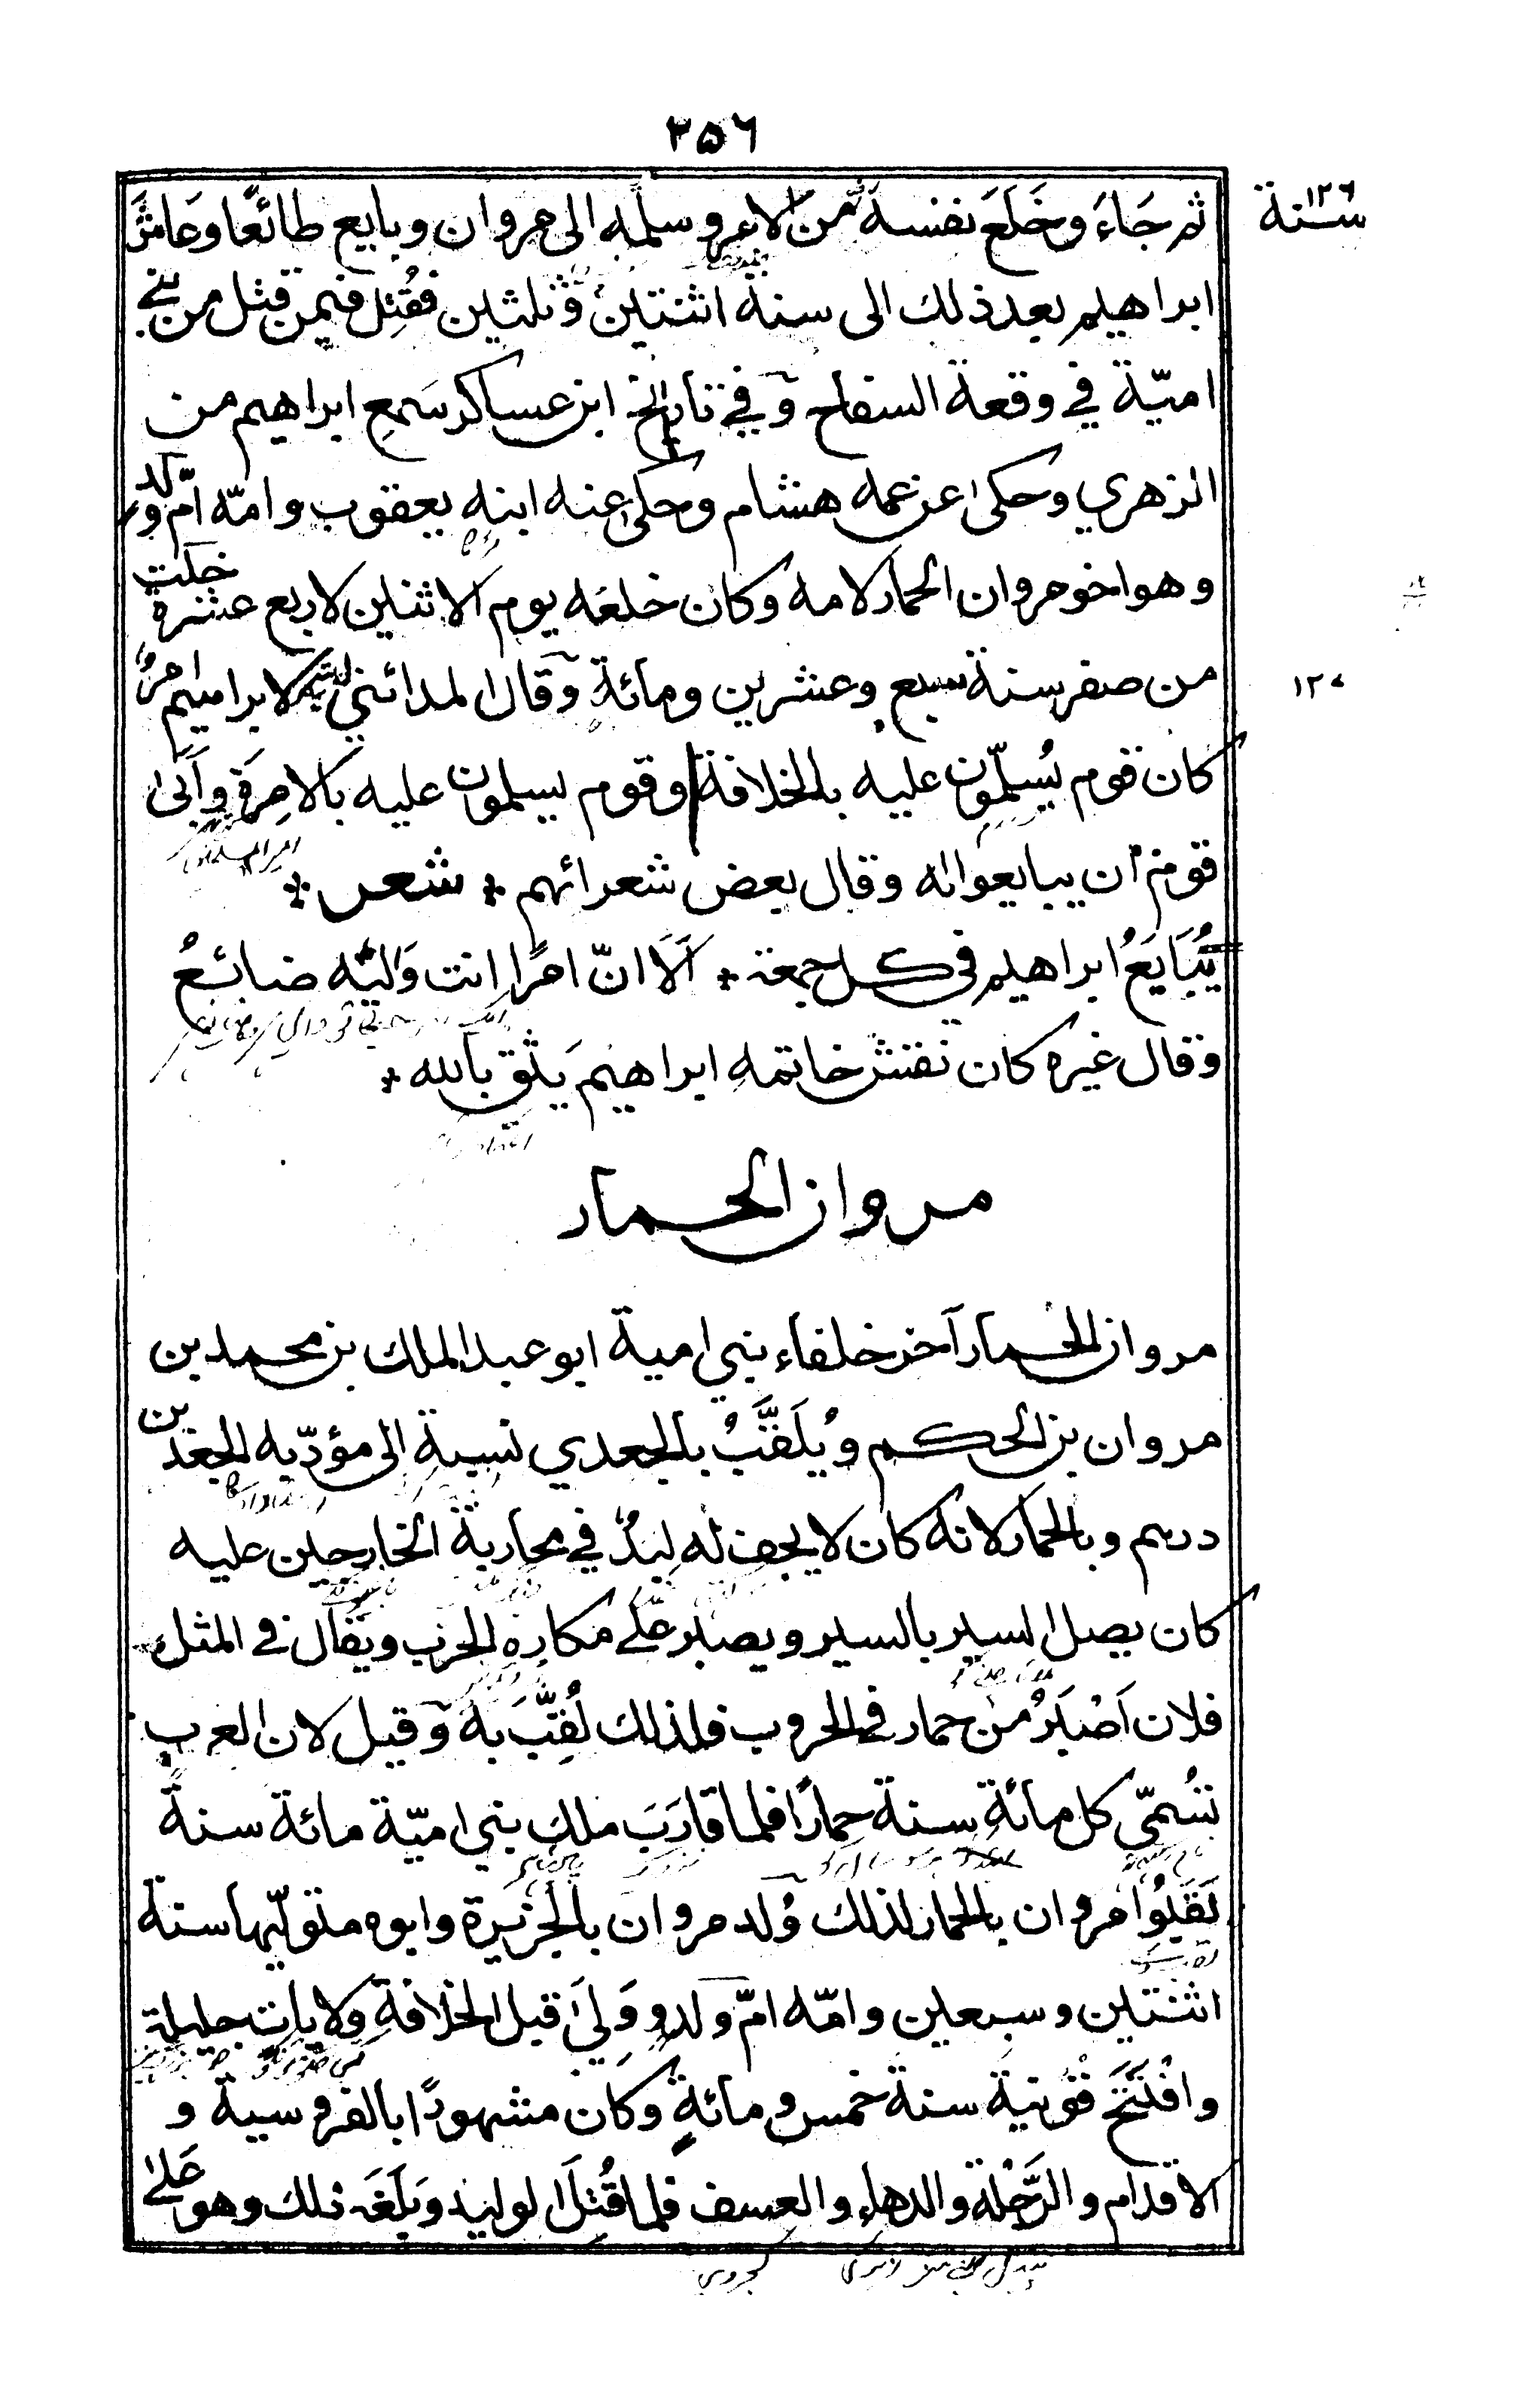 ٢٥٦
سنة ١٢٦
ثم جَاءَ وخَلَعَ نفسه من الامر وسلّمه الى مروان وبايع طائعًا وعَاشَ
ابراهيم بعد ذلك الى سنة اثنتين وثلثين فقُتِل فيمن قتل من بني
اميّة في وقعة السفاح وفي تاريخ ابن عساكر سَمِع ابراهيم من
الزهري وحكى عن عمه هشام وحكى عنه ابنه يعقوب وامّه امّ ولد
وهو اخو مروان الحمار لامه وكان خلعه يوم الاثنين لاربع عشرة خلت
من صفر سنة سبع وعشرين ومائة وقال المدائني لم يتم لابراهيم امرٌ
١٢٧
كان قوم يُسلّمون عليه بالخلافة وقوم يسلمون عليه بالامرة وأبى
قوم ان يبايعوا له وقال بعض شعرائهم * شعر *
يُبَايَعُ ابراهيم في كل جمعة * اَلَا انّ امرًا انت وَاليه ضائعُ
وقال غيره كان نقش خاتمه ابراهيم يَثق بالله *
مروان الحمار
مروان الحمار آخر خلفاء بني امية ابو عبد الملك بن محمد بن
مروان بن الحكم ويُلَقَّبُ بالجعدي نسبة الى مؤدّبه الجعد بن
درهم وبالحمار لانه كان لا يجف له لِبدٌ في محاربة الخارجين عليه
كان يصل السير بالسير ويصبر على مكاره الحرب ويقال في المثل
فلان اَصْبَرُ من حمار في الحروب فلذلك لُقِّبَ به وقيل لان العرب
تُسمّي كل مائةِ سنة حمارًا فلما قارَبَ ملك بني اميّة مائة سنةً
لَقَّبُوا مروان بالحمار لذلك وُلد مروان بالجزيرة وابوه متولّيها سنة
اثنتين وسبعين وامّه امّ ولد ووَلِيَ قبل الخلافةِ ولاياتٍ جليلة
وافْتَتَحَ قُونية سنة خمس ومائةٍ وكان مشهورًا بالفروسية و
الاقدام والرَّجْلة والدهاء والعسف فلما قُتِلَ الوليد وبَلَغَه ذلك وهو على